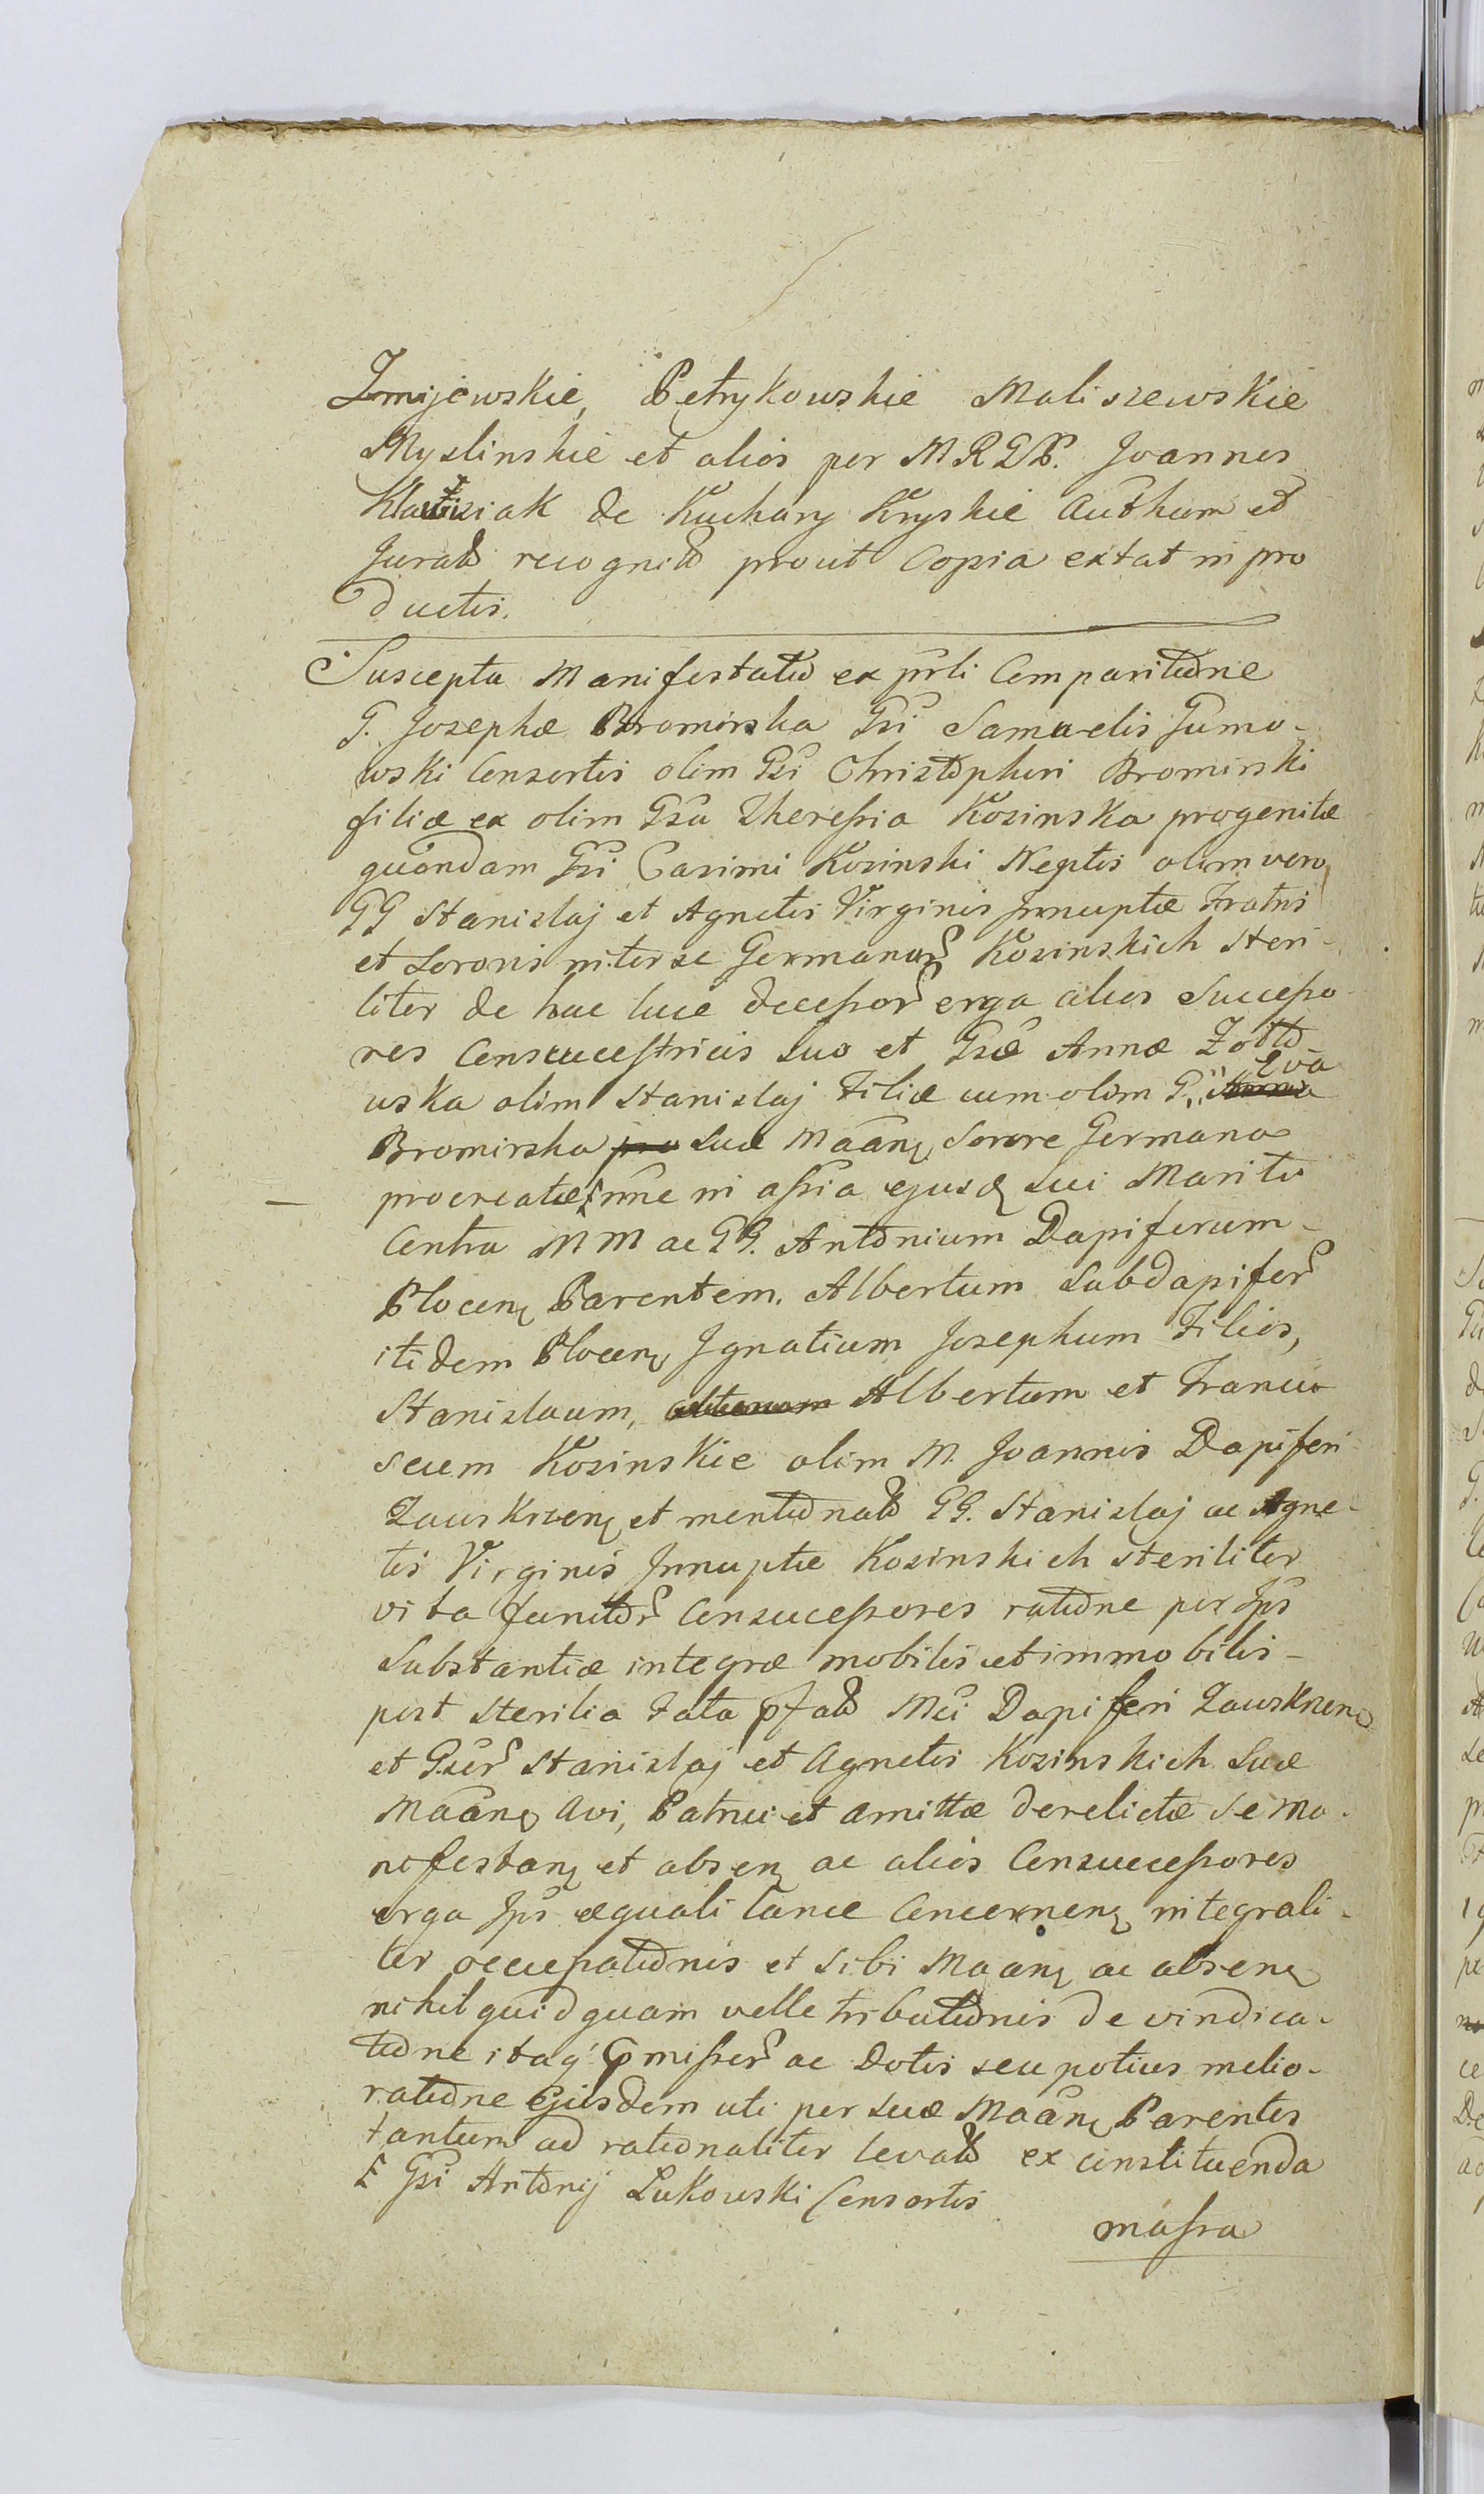 Zmijewskie, Petrykowskie Maliszewskie
Myslinskie et alios per MRGD. Joannes
de Kuchary Kryskie Authum et
Jurato recognito prout Copia extat in pro
ductis.
Suscepta Manifestatio ex prli Comparitione
G. Josephæ Bromirska Gsi Samuelis Gumo-
wski Consortis olim Gsi Christophori Bromirski
filiæ ex olim Gsa Theressia Kosinska progenitæ
quondam Gsi Casimi Kosinski Neptis olim vero
GG Stanislaj et Agnetis Virginis Innuptæ Fratris
et Sororis inter se Germanor Kosinskich steri-
liter de hac luce decessor erga alios Successo-
res Consuccestricis suo et Gsæ Annæ
wska olim Stanislaj Filiæ cum olim G. Eva
Bromirska pro suæ Maanę Sorore Germana
procreatæ nne in assia ejusdę sui Mariti
Contra MM ac GG. Antonium Dapiferum
Plocenę Parentem, Albertum Subdapifer
itidem Plocenę Ignatium Josephum Filios,
Stanislaum, Albertum et Francis
scum Kosinskie olim M. Joannis Dapiferi
Zawskrzenę et mentionato GG. Stanislaj ac Agne-
tis Virginis Innuptæ Kosinskich steriliter
vita functor Consucessores ratione per Ips
Substantiæ integræ mobilis et immobilis
post sterilia fata pfato Mci Dapiferi Zawskrzenę
et Gsor Stanislaj et Agnetis Kosinskich suæ
Maanę Avi, Patrui et Amittæ derelictæ se ma-
nifestanę et absenę ac alios Consuccessores
erga Ips æquali lance Concernenę integrali-
ter occupationis et sibi Maanę ac absenę
nihil quidquam velle tributionis de vindica-
tione itaq pmissor ac Dotis seu potius melio-
ratione Ejusdem uti per suæ Maanę Parentes
tantum ad rationaliter levato ex constituenda
Ɫ Gsi Antonij Lukowski Consortis
massa